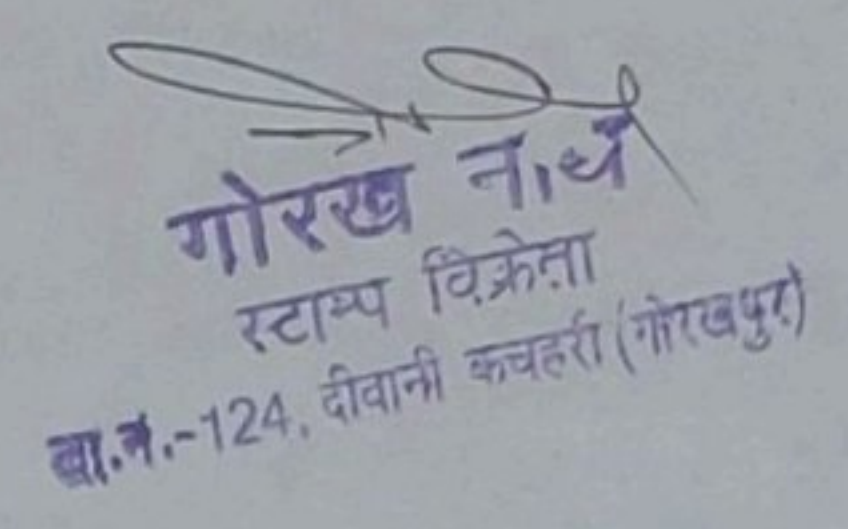 गोरख नाथ
स्टाम्प विक्रेता
ला.नं.-124, दीवानी कचहरी (गोरखपुर)